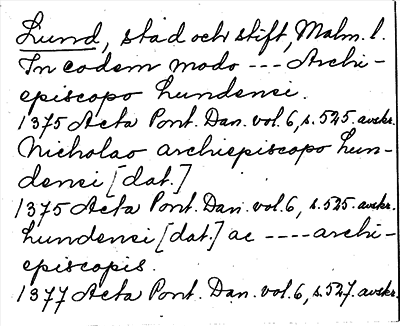 Lund, stad och stift, Malm. l.
In eodem modo --- Archi-
episcopo Lundensi.
1375 Acta Pont. Dan. vol. 6, s. 525. avskr.
Nicholao archiepiscopo Lun-
densi [dat.]
1375 Acta Pont. Dan. vol. 6, s. 525. avskr.
Lundensi [dat.] ac ---- archi-
episcopis.
1377 Acta Pont. Dan. vol. 6, s. 527. avskr.